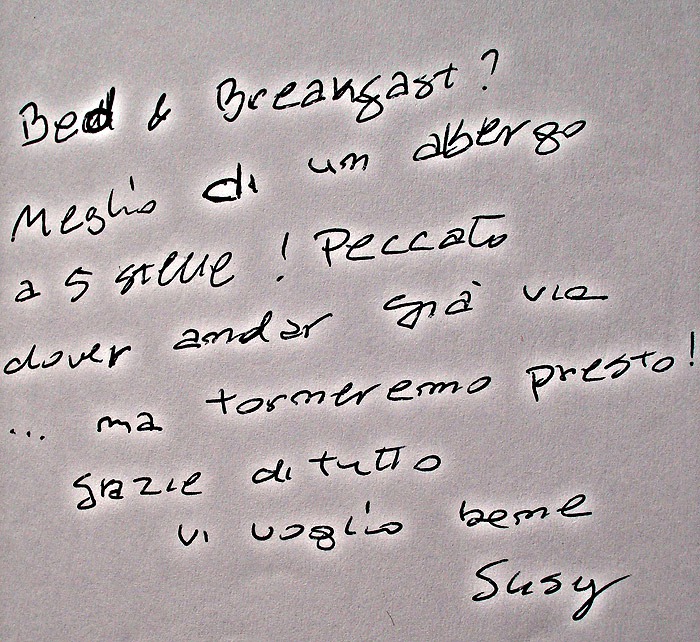 Bed & Breakfast?
Meglio di un albergo
a 5 stelle! Peccato
dover andar già via
... ma torneremo presto!
grazie di tutto
vi voglio bene
Susy